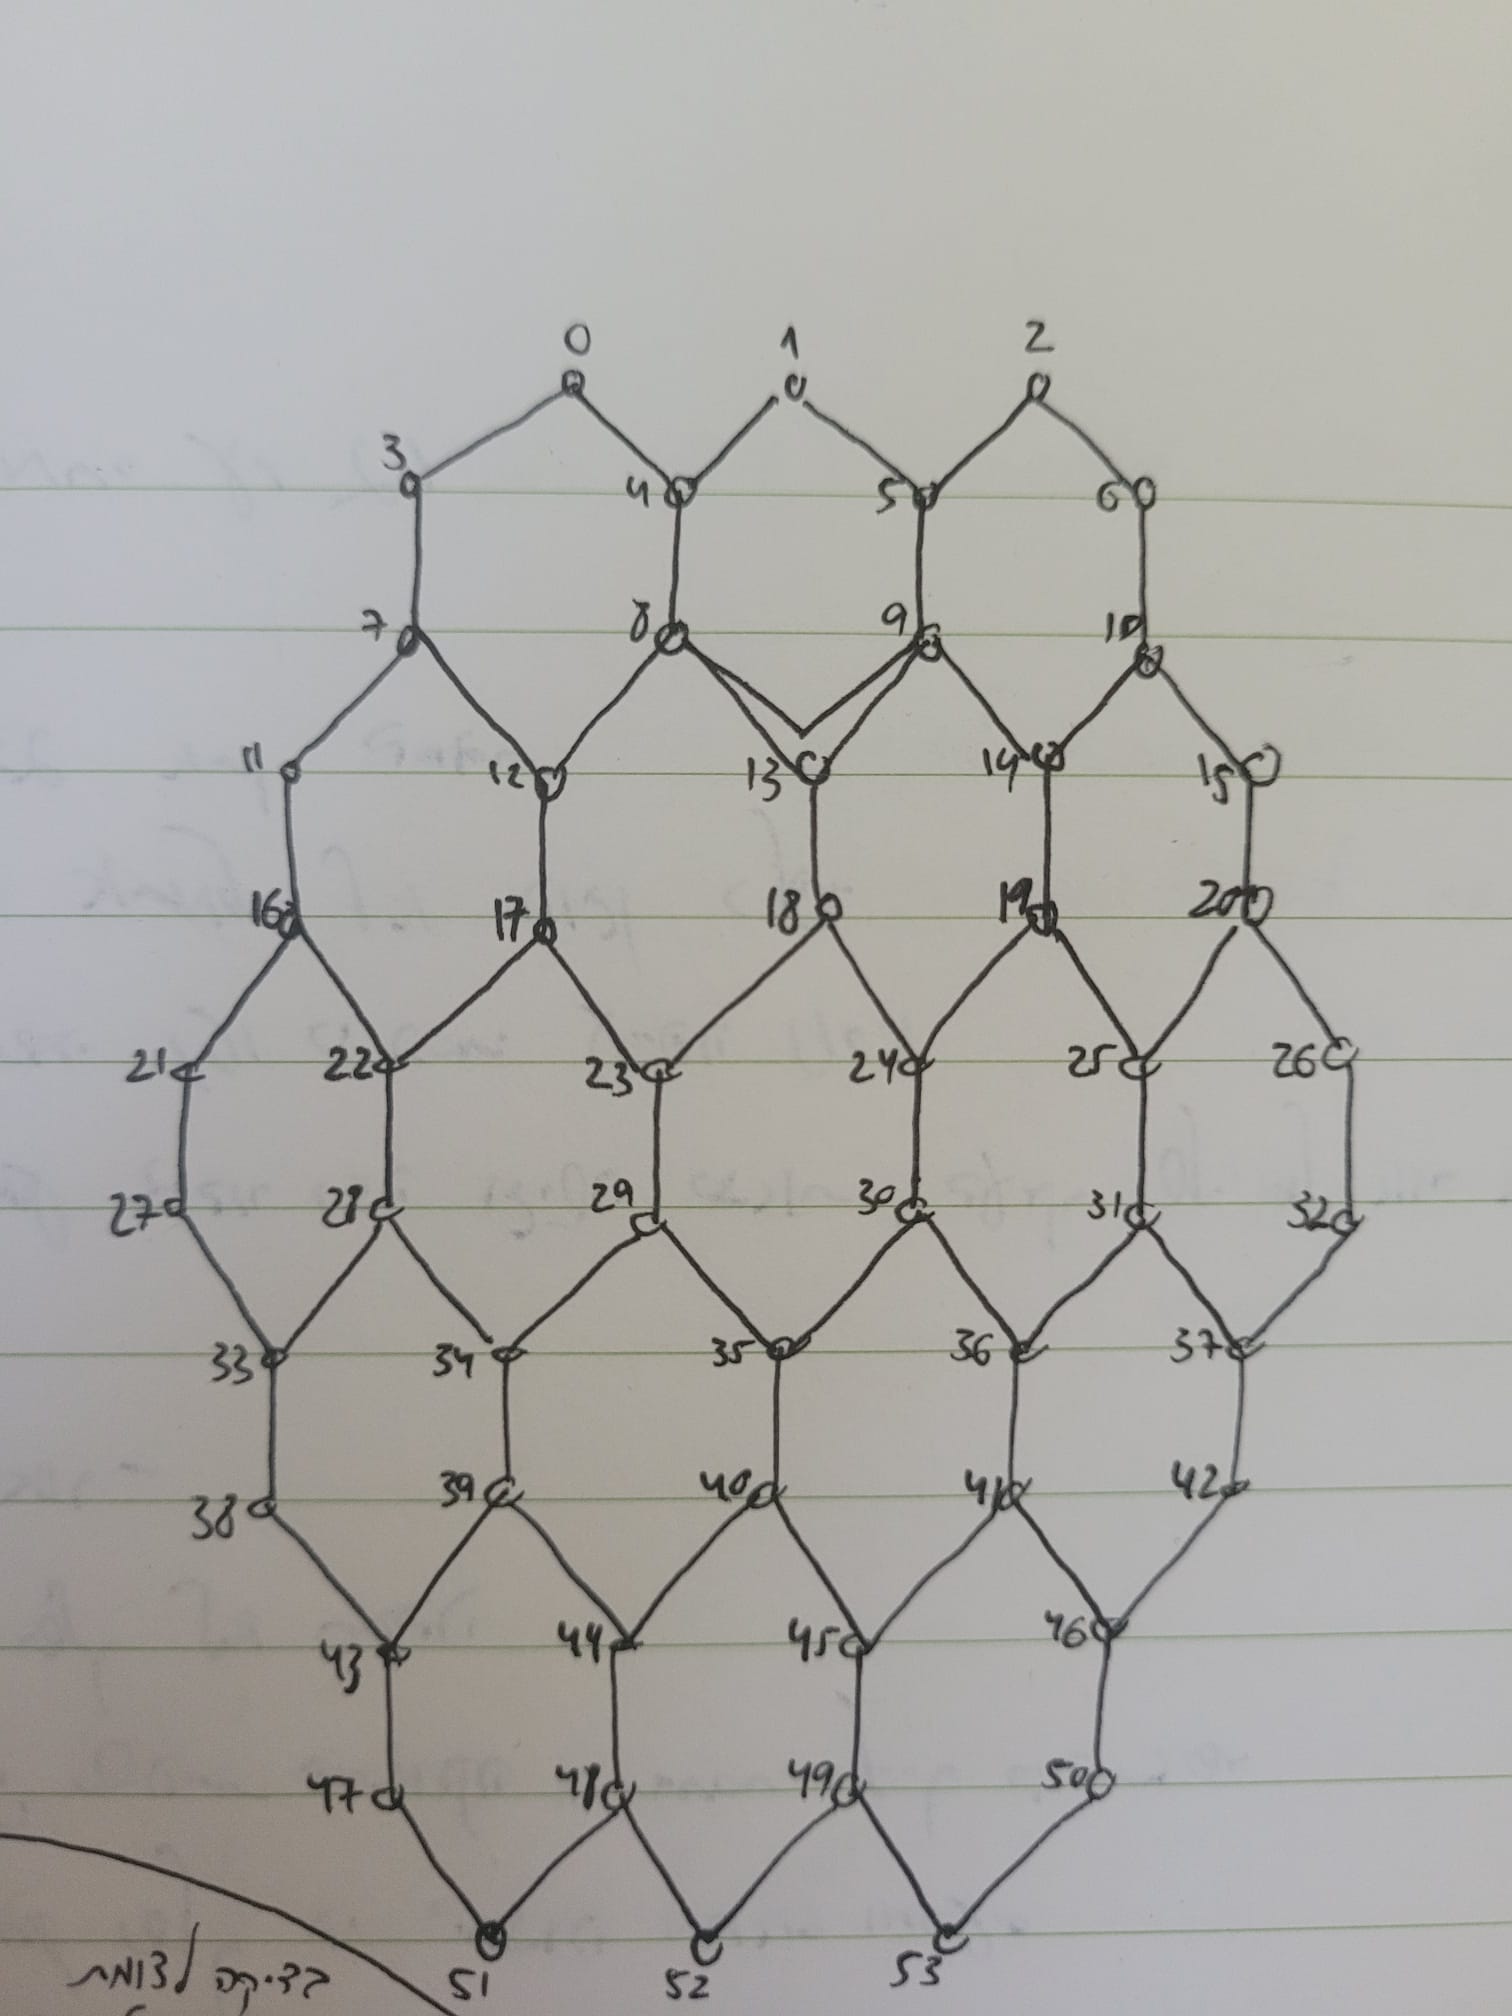 0 1 2
3 4 5 6
7 8 9 10
11 12 13 14 15
16 17 18 19 20
21 22 23 24 25 26
27 28 29 30 31 32
33 34 35 36 37
38 39 40 41 42
43 44 45 46
47 48 49 50
51 52 53
בדיקה לצומת